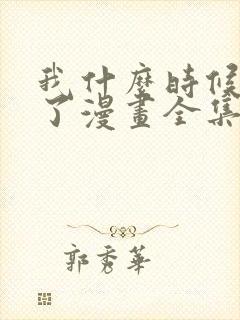 我什麼時候
了漫畫全集
郭秀華